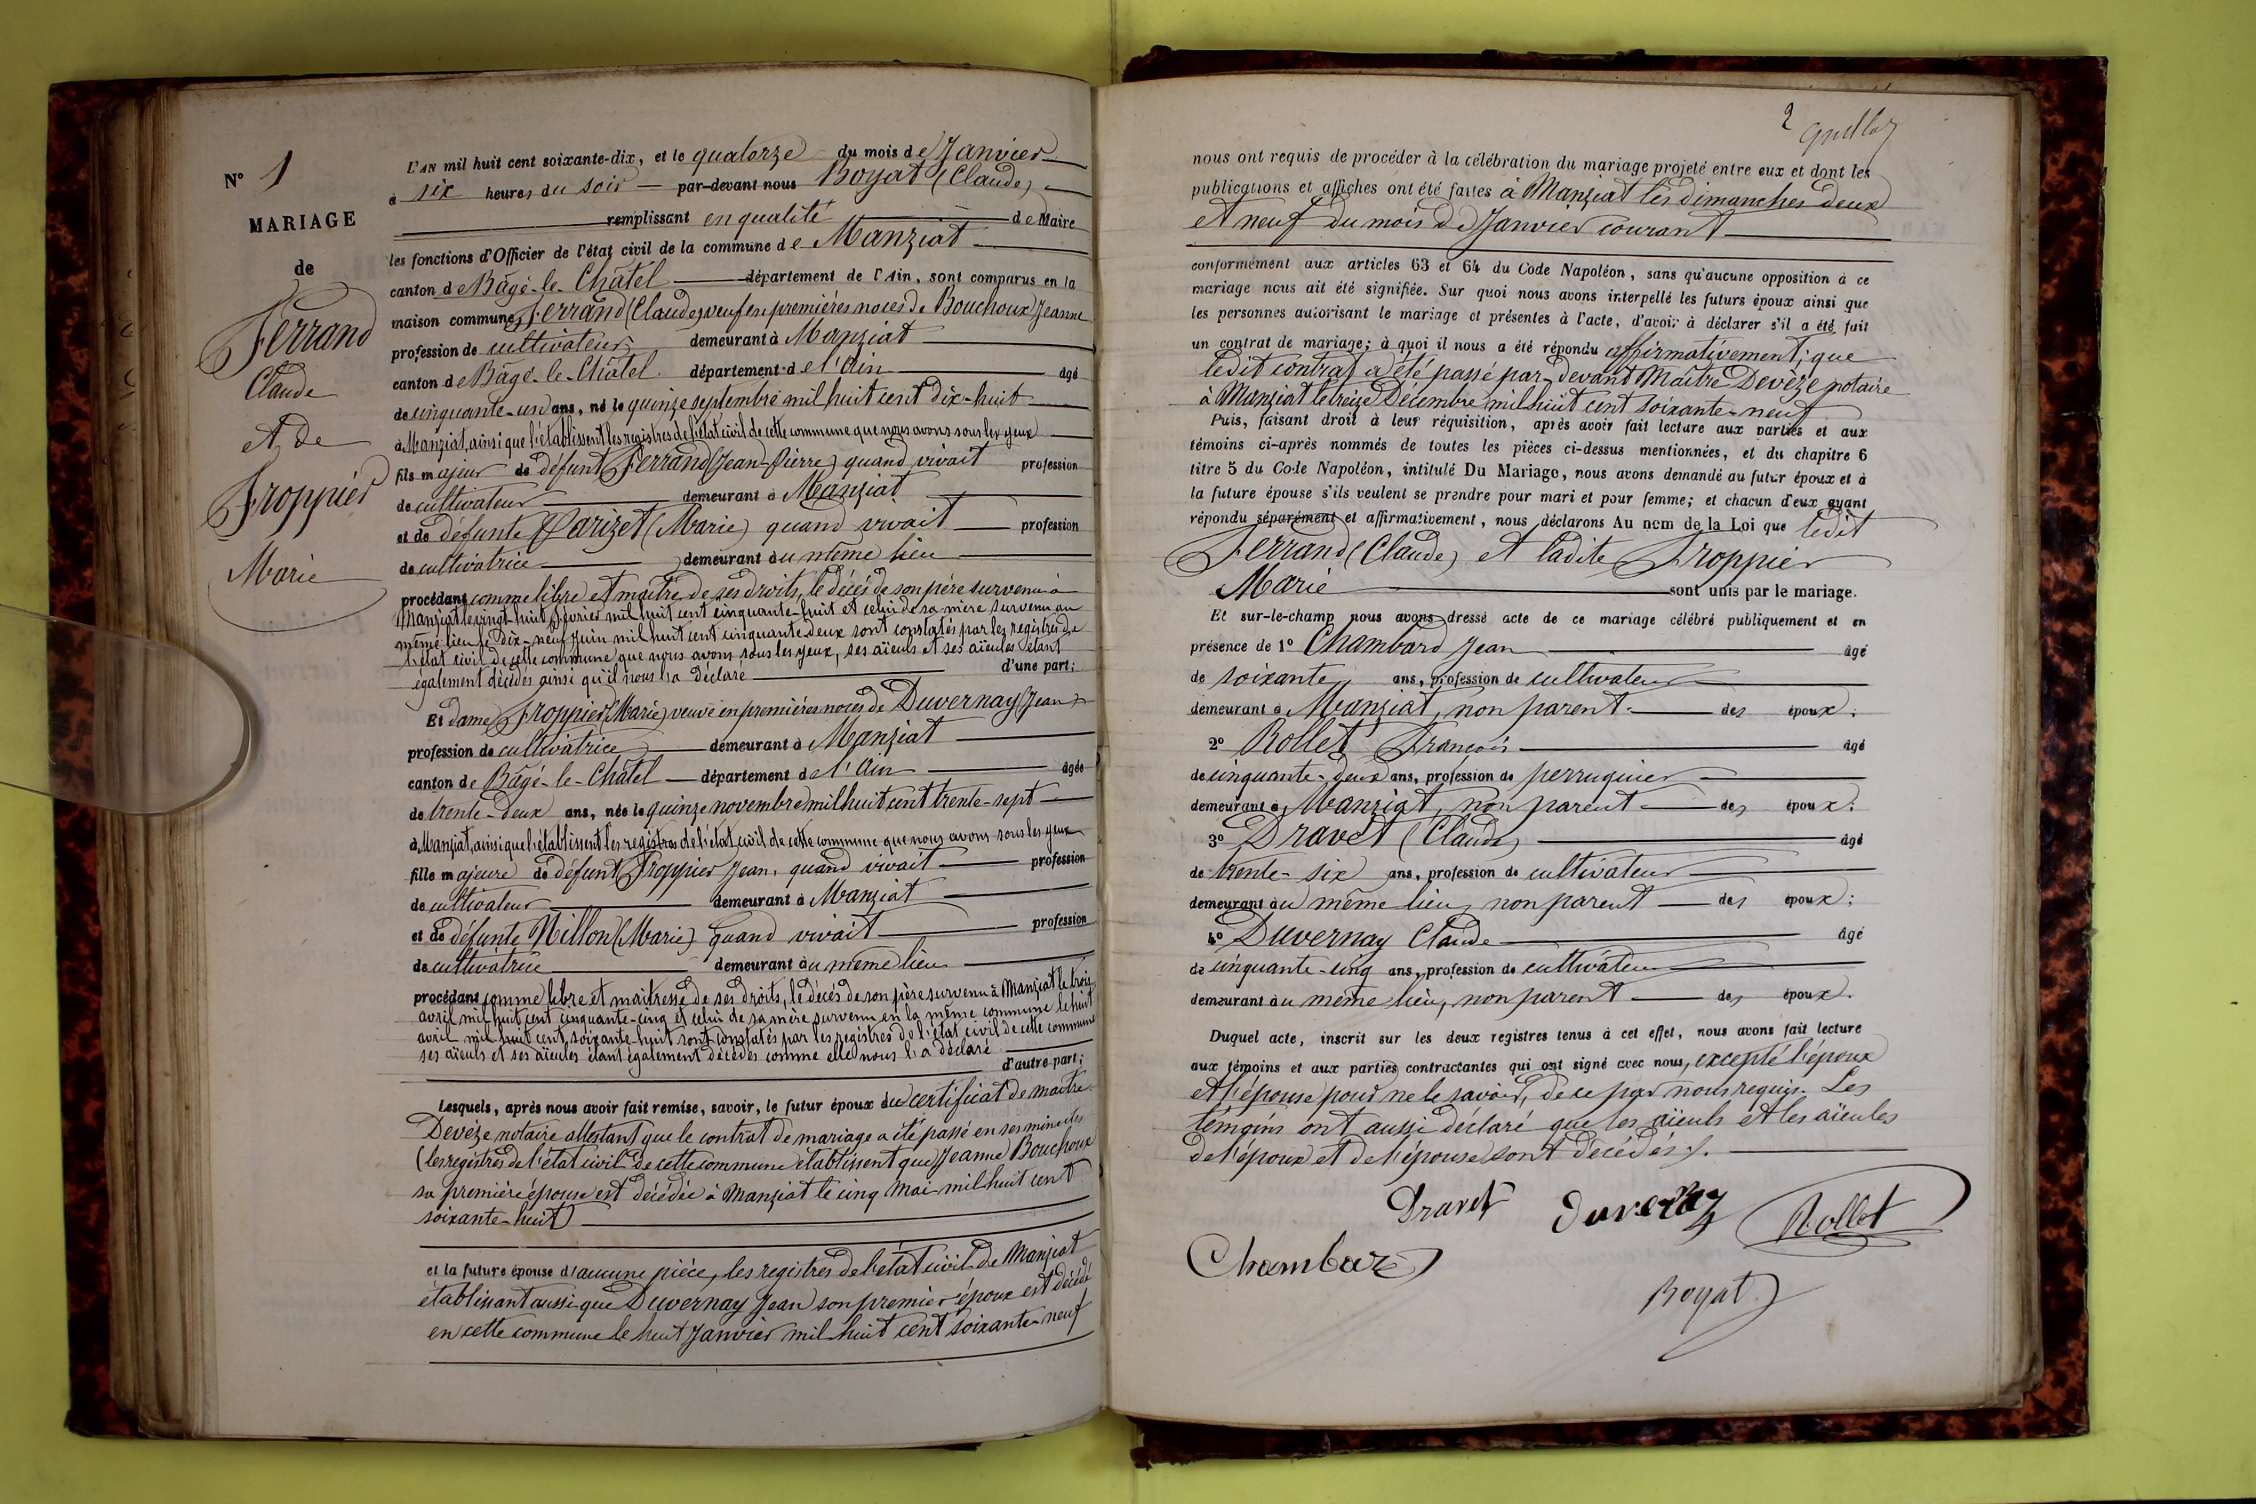 N° 1
MARIAGE
de
Ferrand
Claude
et de
Froppier
Marie
L'AN mil huit cent soixante-dix, et le quatorze du mois de Janvier
à six heures du soir par-devant nous Boyat (Claude)
remplissant en qualité de Maire
les fonctions d'Officier de l'état civil de la commune de Manziat
canton de Bâgé-le-Châtel département de l'Ain, sont comparus en la
maison commune, Ferrand (Claude) veuf en premières noces de Bouchoux Jeanne
profession de cultivateur demeurant à Manziat
canton de Bâgé-le-Châtel département de l'Ain âgé
de cinquante-un ans, né le quinze septembre mil huit cent dix-huit
à Manziat, ainsi que l'établissent les registres de l'état civil de cette commune que nous avons sous les yeux
fils majeur de défunt Ferrand (Jean-Pierre) quand vivait profession
de cultivateur demeurant à Manziat
et de défunte Parizet (Marie) quand vivait profession
de cultivatrice demeurant au même lieu
procédant comme libre et maître de ses droits, le décès de son père survenu à
Manziat le vingt-huit février mil huit cent cinquante-huit et celui de sa mère survenu au
même lieu le dix-neuf Juin mil huit cent cinquante deux sont constatés par les registres de
l'état civil de cette commune que nous avons sous les yeux, ses aïeuls et ses aïeules étant
également décédés ainsi qu'il nous l'a déclaré d'une part;
Et dame Froppier (Marie) veuve en premières noces de Duvernay (Jean)
profession de cultivatrice demeurant à Manziat
canton de Bâgé-le-Châtel département de l'Ain âgée
de trente-deux ans, née le quinze novembre mil huit cent trente-sept
à Manziat, ainsi que l'établissent les registres de l'état civil de cette commune que nous avons sous les yeux
fille majeure de défunt Froppier Jean, quand vivait profession
de cultivateur demeurant à Manziat
et de défunte Nillon (Marie) quand vivait profession
de cultivatrice demeurant au même lieu
procédant comme libre et maîtresse de ses droits, le décès de son père survenu à Manziat le trois
avril mil huit cent cinquante-cinq et celui de sa mère survenu en la même commune le huit
avril mil huit cent soixante-huit sont constatés par les registres de l'état civil de cette commune
ses aïeuls et ses aïeules étant également décédés comme elle nous l'a déclaré
d'autre part;
Lesquels, après nous avoir fait remise, savoir, le futur époux du certificat de maître
Devèze notaire attestant que le contrat de mariage a été passé en ses minutes
(les registres de l'état civil de cette commune établissent que Jeanne Bouchoux
sa première épouse est décédée à Manziat le cinq Mai mil huit cent
soixante-huit)
et la future épouse d'aucune pièce, les registres de l'état civil de Manziat
établissant aussi que Duvernay Jean son premier époux est décédé
en cette commune le huit Janvier mil huit cent soixante-neuf
2
nous ont requis de procéder à la célébration du mariage projeté entre eux et dont les
publications et affiches ont été faites à Manziat les dimanches deux
et neuf du mois de Janvier courant
conformément aux articles 63 et 64 du Code Napoléon, sans qu'aucune opposition à ce
mariage nous ait été signifiée. Sur quoi nous avons interpellé les futurs époux ainsi que
les personnes autorisant le mariage et présentes à l'acte, d'avoir à déclarer s'il a été fait
un contrat de mariage; à quoi il nous a été répondu affirmativement; que
ledit contrat a été passé par-devant Maître Devèze notaire
à Manziat le treize Décembre mil huit cent soixante-neuf
Puis, faisant droit à leur réquisition, après avoir fait lecture aux parties et aux
témoins ci-après nommés de toutes les pièces ci-dessus mentionnées, et du chapitre 6
titre 5 du Code Napoléon, intitulé Du Mariage, nous avons demandé au futur époux et à
la future épouse s'ils veulent se prendre pour mari et pour femme; et chacun d'eux ayant
répondu séparément et affirmativement, nous déclarons Au nom de la Loi que ledit
Ferrand (Claude) et ladite Froppier
Marie sont unis par le mariage.
Et sur-le-champ nous avons dressé acte de ce mariage célébré publiquement et en
présence de 1° Chambard Jean âgé
de soixante ans, profession de cultivateur
demeurant à Manziat, non parent des époux;
2° Rollet François âgé
de cinquante-deux ans, profession de perruquier
demeurant à Manziat, non parent des époux;
3° Dravet (Claude) âgé
de trente-six ans, profession de cultivateur
demeurant au même lieu, non parent des époux;
4° Duvernay Claude âgé
de cinquante-cinq ans, profession de cultivateur
demeurant au même lieu, non parent des époux.
Duquel acte, inscrit sur les deux registres tenus à cet effet, nous avons fait lecture
aux témoins et aux parties contractantes qui ont signé avec nous, excepté l'époux
et l'épouse pour ne le savoir, de ce par nous requis. Les
témoins ont aussi déclaré que les aïeuls et les aïeules
de l'époux et de l'épouse sont décédés.
Dravet Duvernay Rollet
Chambard
Boyat